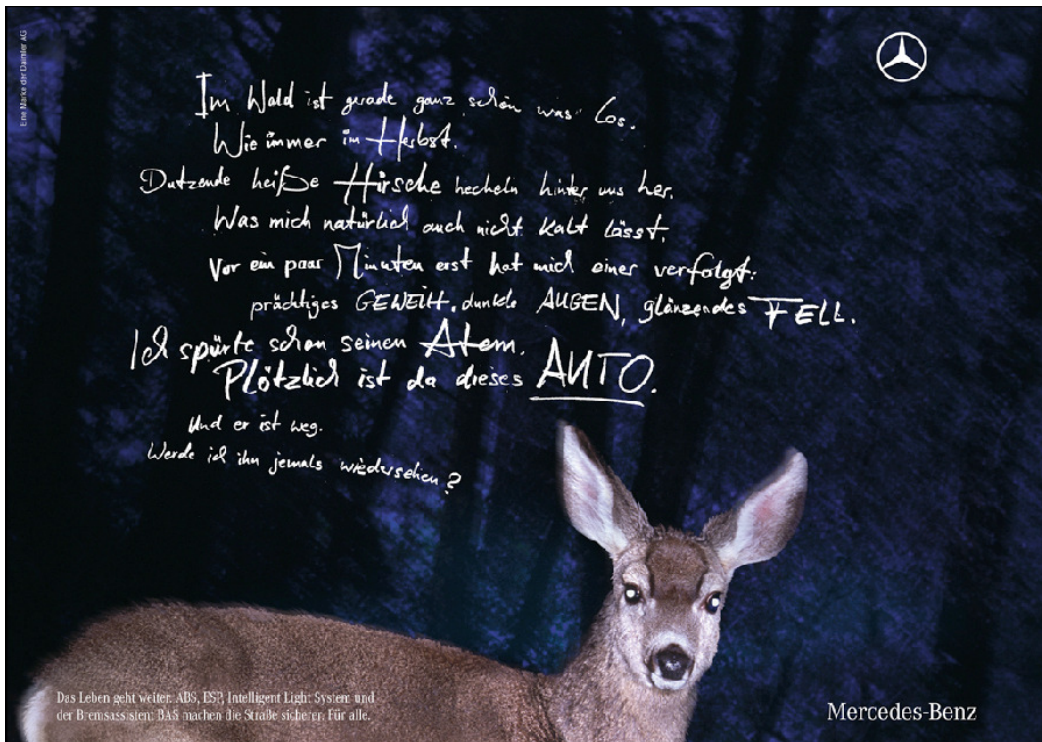 Eine Marke der Daimler AG
Im Wald ist gerade ganz schön was los.
Wie immer im Herbst.
Dutzende heiße Hirsche hecheln hinter uns her.
Was mich natürlich auch nicht kalt lässt.
Vor ein paar Minuten erst hat mich einer verfolgt:
prächtiges GEWEIH, dunkle AUGEN, glänzendes FELL.
Ich spürte schon seinen Atem.
Plötzlich ist da dieses AUTO.
Und er ist weg.
Werde ich ihn jemals wiedersehen?
Das Leben geht weiter. ABS, ESP, Intelligent Light System und
der Bremsassistent BAS machen die Straße sicherer. Für alle.
Mercedes-Benz